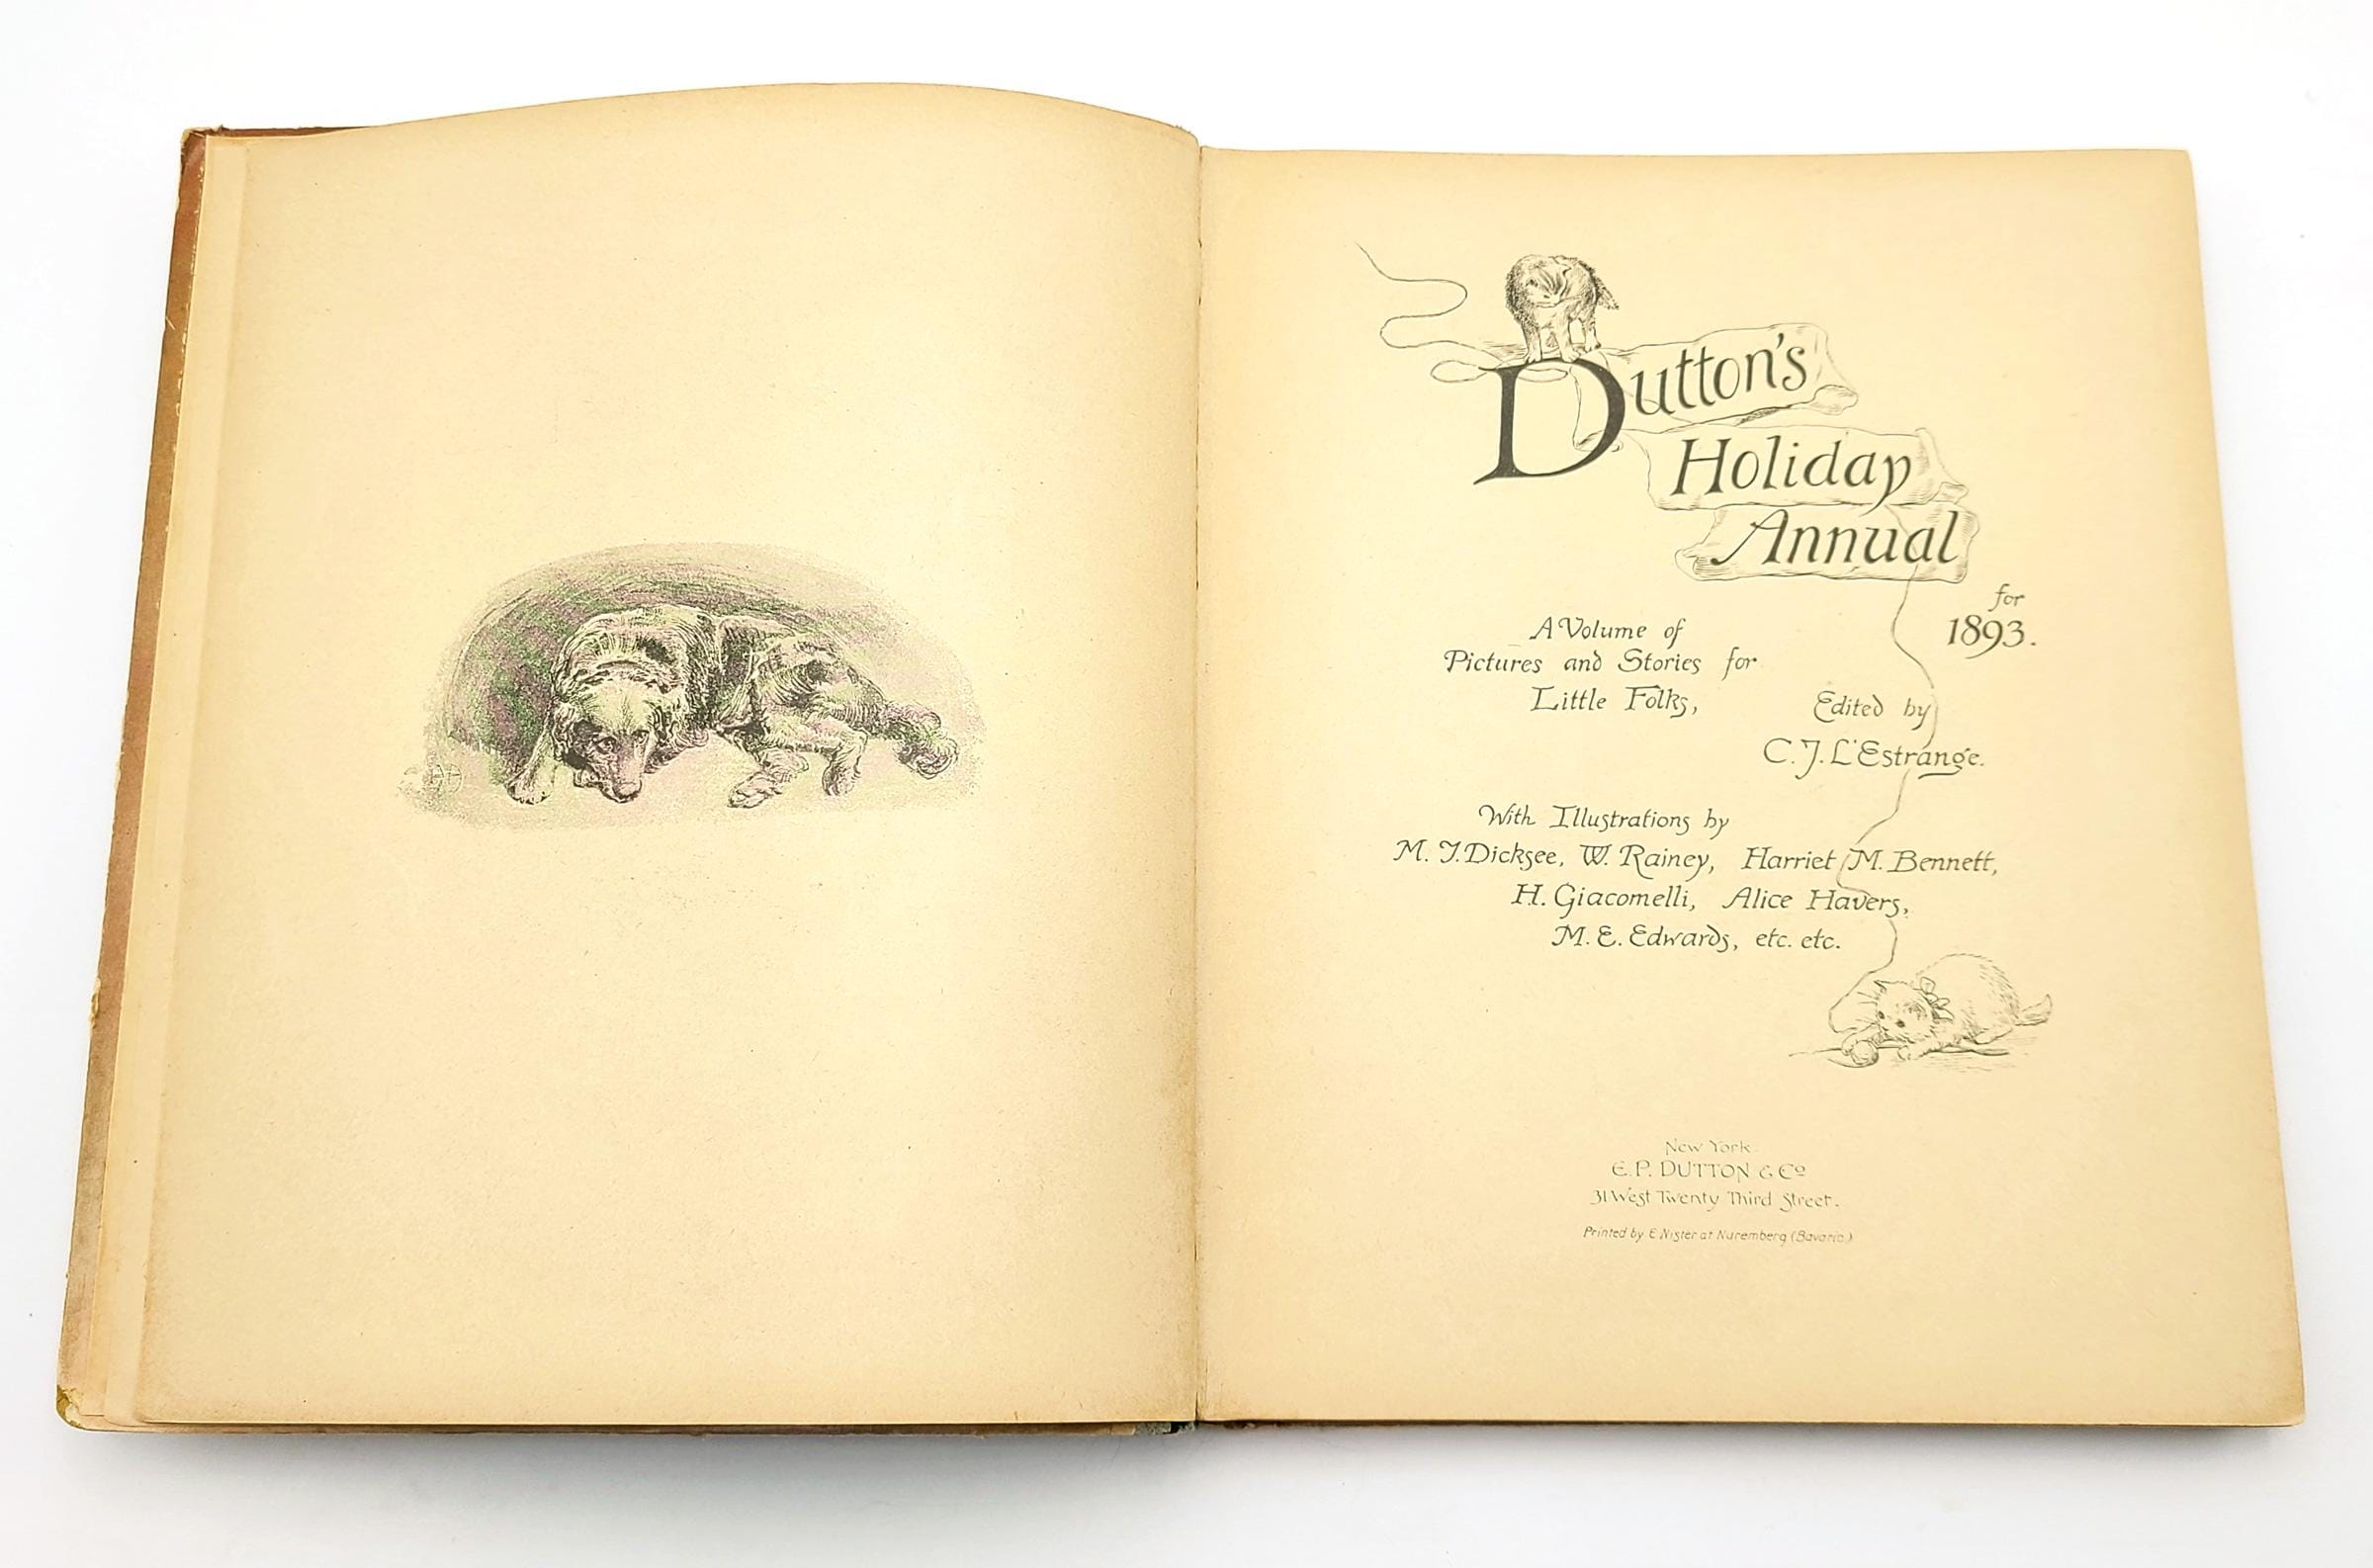 Dutton's
Holiday
Annual
for
1893.
A Volume of
Pictures and Stories for
Little Folks,
Edited by
C. J. L'Estrange.
With Illustrations by
M. I. Dicksee, W. Rainey, Harriet M. Bennett,
H. Giacomelli, Alice Havers,
M. E. Edwards, etc. etc.
New York
E. P. DUTTON & Co
31 West Twenty Third Street.
Printed by E. Nister at Nuremberg (Bavaria.)